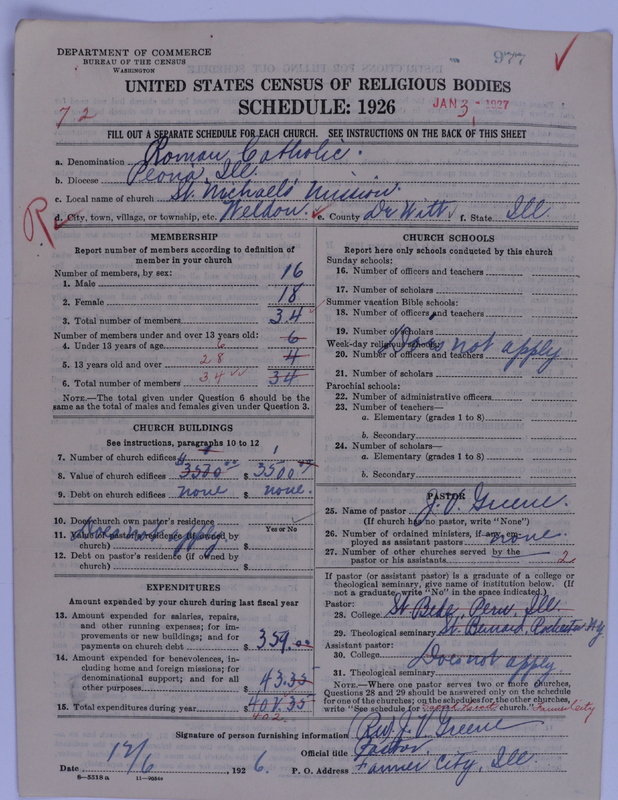 DEPARTMENT OF COMMERCE
BUREAU OF THE CENSUS
WASHINGTON
977
UNITED STATES CENSUS OF RELIGIOUS BODIES
SCHEDULE: 1926
JAN 3 - 1927
72
FILL OUT A SEPARATE SCHEDULE FOR EACH CHURCH. SEE INSTRUCTIONS ON THE BACK OF THIS SHEET
a. Denomination Roman Catholic.
b. Diocese Peoria, Ill.
c. Local name of church St. Michaels' Mission.
R d. City, town, village, or township, etc. Weldon. e. County De Witt f. State Ill.
MEMBERSHIP
Report number of members according to definition of
member in your church
Number of members, by sex:
1. Male 16
2. Female 18
3. Total number of members 34
Number of members under and over 13 years old:
4. Under 13 years of age 6 6
5. 13 years old and over 28 4
6. Total number of members 34 34
NOTE.—The total given under Question 6 should be
same as the total of males and females given under Question 3.
CHURCH BUILDINGS
See instructions, paragraphs 10 to 12
7. Number of church edifices 1
8. Value of church edifices $ 3500
9. Debt on church edifices none $ none.
10. Does church own pastor's residence
Yes or No
11. Value of pastor's residence (if owned by
church) $
Does not apply
12. Debt on pastor's residence (if owned by
church) $
EXPENDITURES
Amount expended by your church during last fiscal year
13. Amount expended for salaries, repairs,
and other running expenses; for im-
provements or new buildings; and for
payments on church debt $ 359.00
14. Amount expended for benevolences, in-
cluding home and foreign missions; for
denominational support; and for all
other purposes $ 43.35
15. Total expenditures during year $ 402.35
402
CHURCH SCHOOLS
Report here only schools conducted by this church
Sunday schools:
16. Number of officers and teachers
17. Number of scholars
Summer vacation Bible schools:
18. Number of officers and teachers
19. Number of scholars
Does not apply
Week-day religious schools:
20. Number of officers and teachers
21. Number of scholars
Parochial schools:
22. Number of administrative officers
23. Number of teachers—
a. Elementary (grades 1 to 8)
b. Secondary
24. Number of scholars—
a. Elementary (grades 1 to 8)
b. Secondary
PASTOR
25. Name of pastor J. V. Greene.
(If church has no pastor, write "None")
26. Number of ordained ministers, if any, em-
ployed as assistant pastors none.
27. Number of other churches served by the
pastor or his assistants 2
If pastor (or assistant pastor) is a graduate of a college or
theological seminary, give name of institution below. (If
not a graduate, write "No" in the space indicated.)
Pastor:
28. College St Bede, Peru, Ill.
29. Theological seminary St. Bernard, Rochester N.Y.
Assistant pastor:
30. College
Does not apply
31. Theological seminary
NOTE.—Where one pastor serves two or more churches,
Questions 28 and 29 should be answered only on the schedule
for one of the churches; on the schedules for the other churches,
write "See schedule for Sacred Heart church." Farmer City
Signature of person furnishing information Rev. J. V. Greene
Official title Pastor.
Date 12/6, 1926. P. O. Address Farmer City, Ill.
8-5518a 11-9054